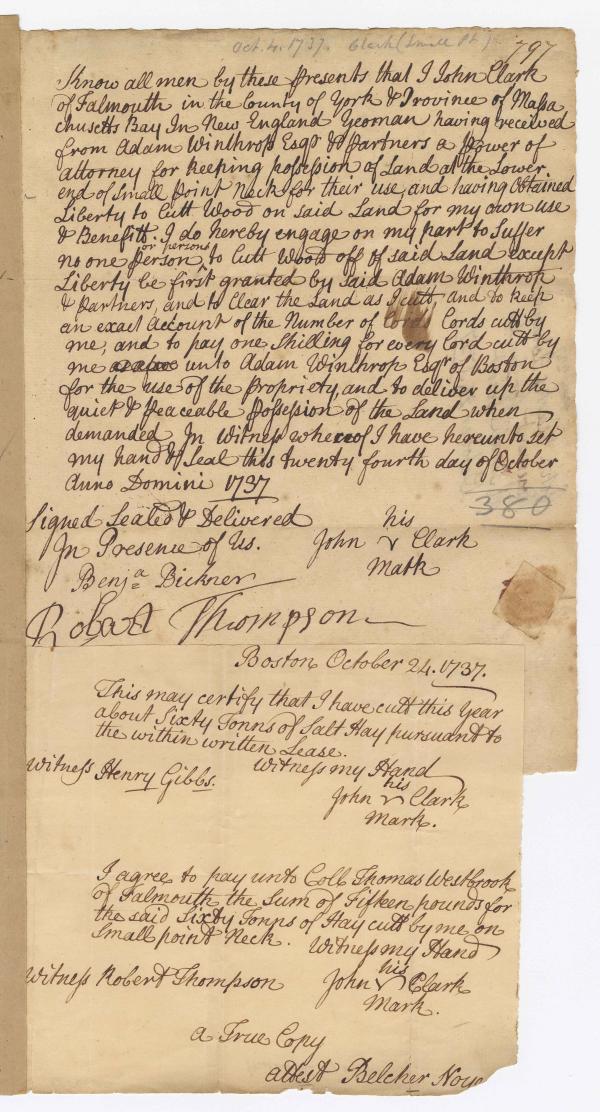 Oct. 4. 1737. Clark (Small Pt.)
797
Know all men by these Presents that I John Clark
of Falmouth in the County of York & Province of Massa
chusetts Bay In New England Yeoman having received
from Adam Winthrop Esqr. & Partners a Power of
attorney for keeping possession of Land at the Lower
end of Small Point Neck for their use, and having Obtained
Liberty to Cutt Wood on said Land for my own use
& Benefitt. I do hereby engage on my part to Suffer
no one Person or persons to Cutt Wood off of said Land except
Liberty be first granted by said Adam Winthrop
& Partners, and to Clear the Land as I cutt, and to keep
an exact Account of the Number of Cords Cords cutt by
me, and to pay one Shilling for every Cord cutt by
me unto Adam Winthrop Esqr. of Boston
for the use of the Propriety, and to deliver up the
quiet & Peaceable Possession of the Land when
demanded. In Witness whereof I have hereunto set
my hand & Seal this twenty fourth day of October
Anno Domini 1737
380
Signed Sealed & Delivered
In Presence of Us.
his
John Clark
Mark
Benja Bickner
Robart Thompson
Boston October 24. 1737.
This may certify that I have cutt this Year
about Sixty Tonns of Salt Hay pursuant to
the within written Lease.
Witness Henry Gibbs. Witness my Hand
his
John Clark
Mark.
I agree to pay unto Coll Thomas Westbrook
of Falmouth the Sum of Fifteen pounds for
the said Sixty Tonns of Hay cutt by me on
Small point Neck. Witness my Hand
his
Witness Robert Thompson John Clark
Mark.
a True Copy
attest Belcher Noy